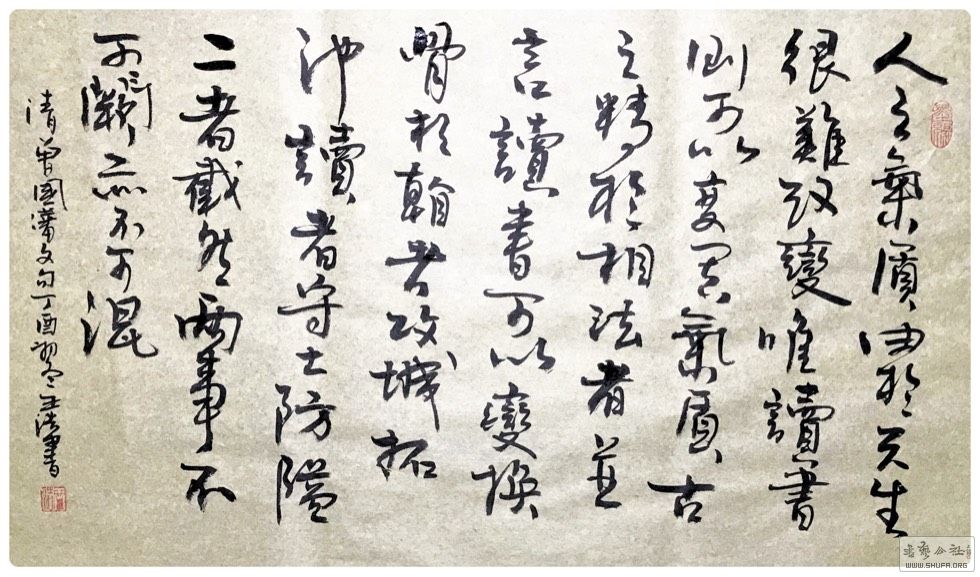 人之氣質由於天生
很難改變唯讀書
則可以變其氣質古
之精於相法者並
言讀書可以變換
骨相看者攻城拓
地讀者守土防隘
二者截然兩事不
可闕亦不可混
清曾國藩文句丁酉書
書藝公社
WWW.SHUFA.ORG